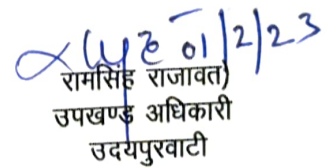 01/2/23
रामसिंह राजावत)
उपखण्ड अधिकारी
उदयपुरवाटी